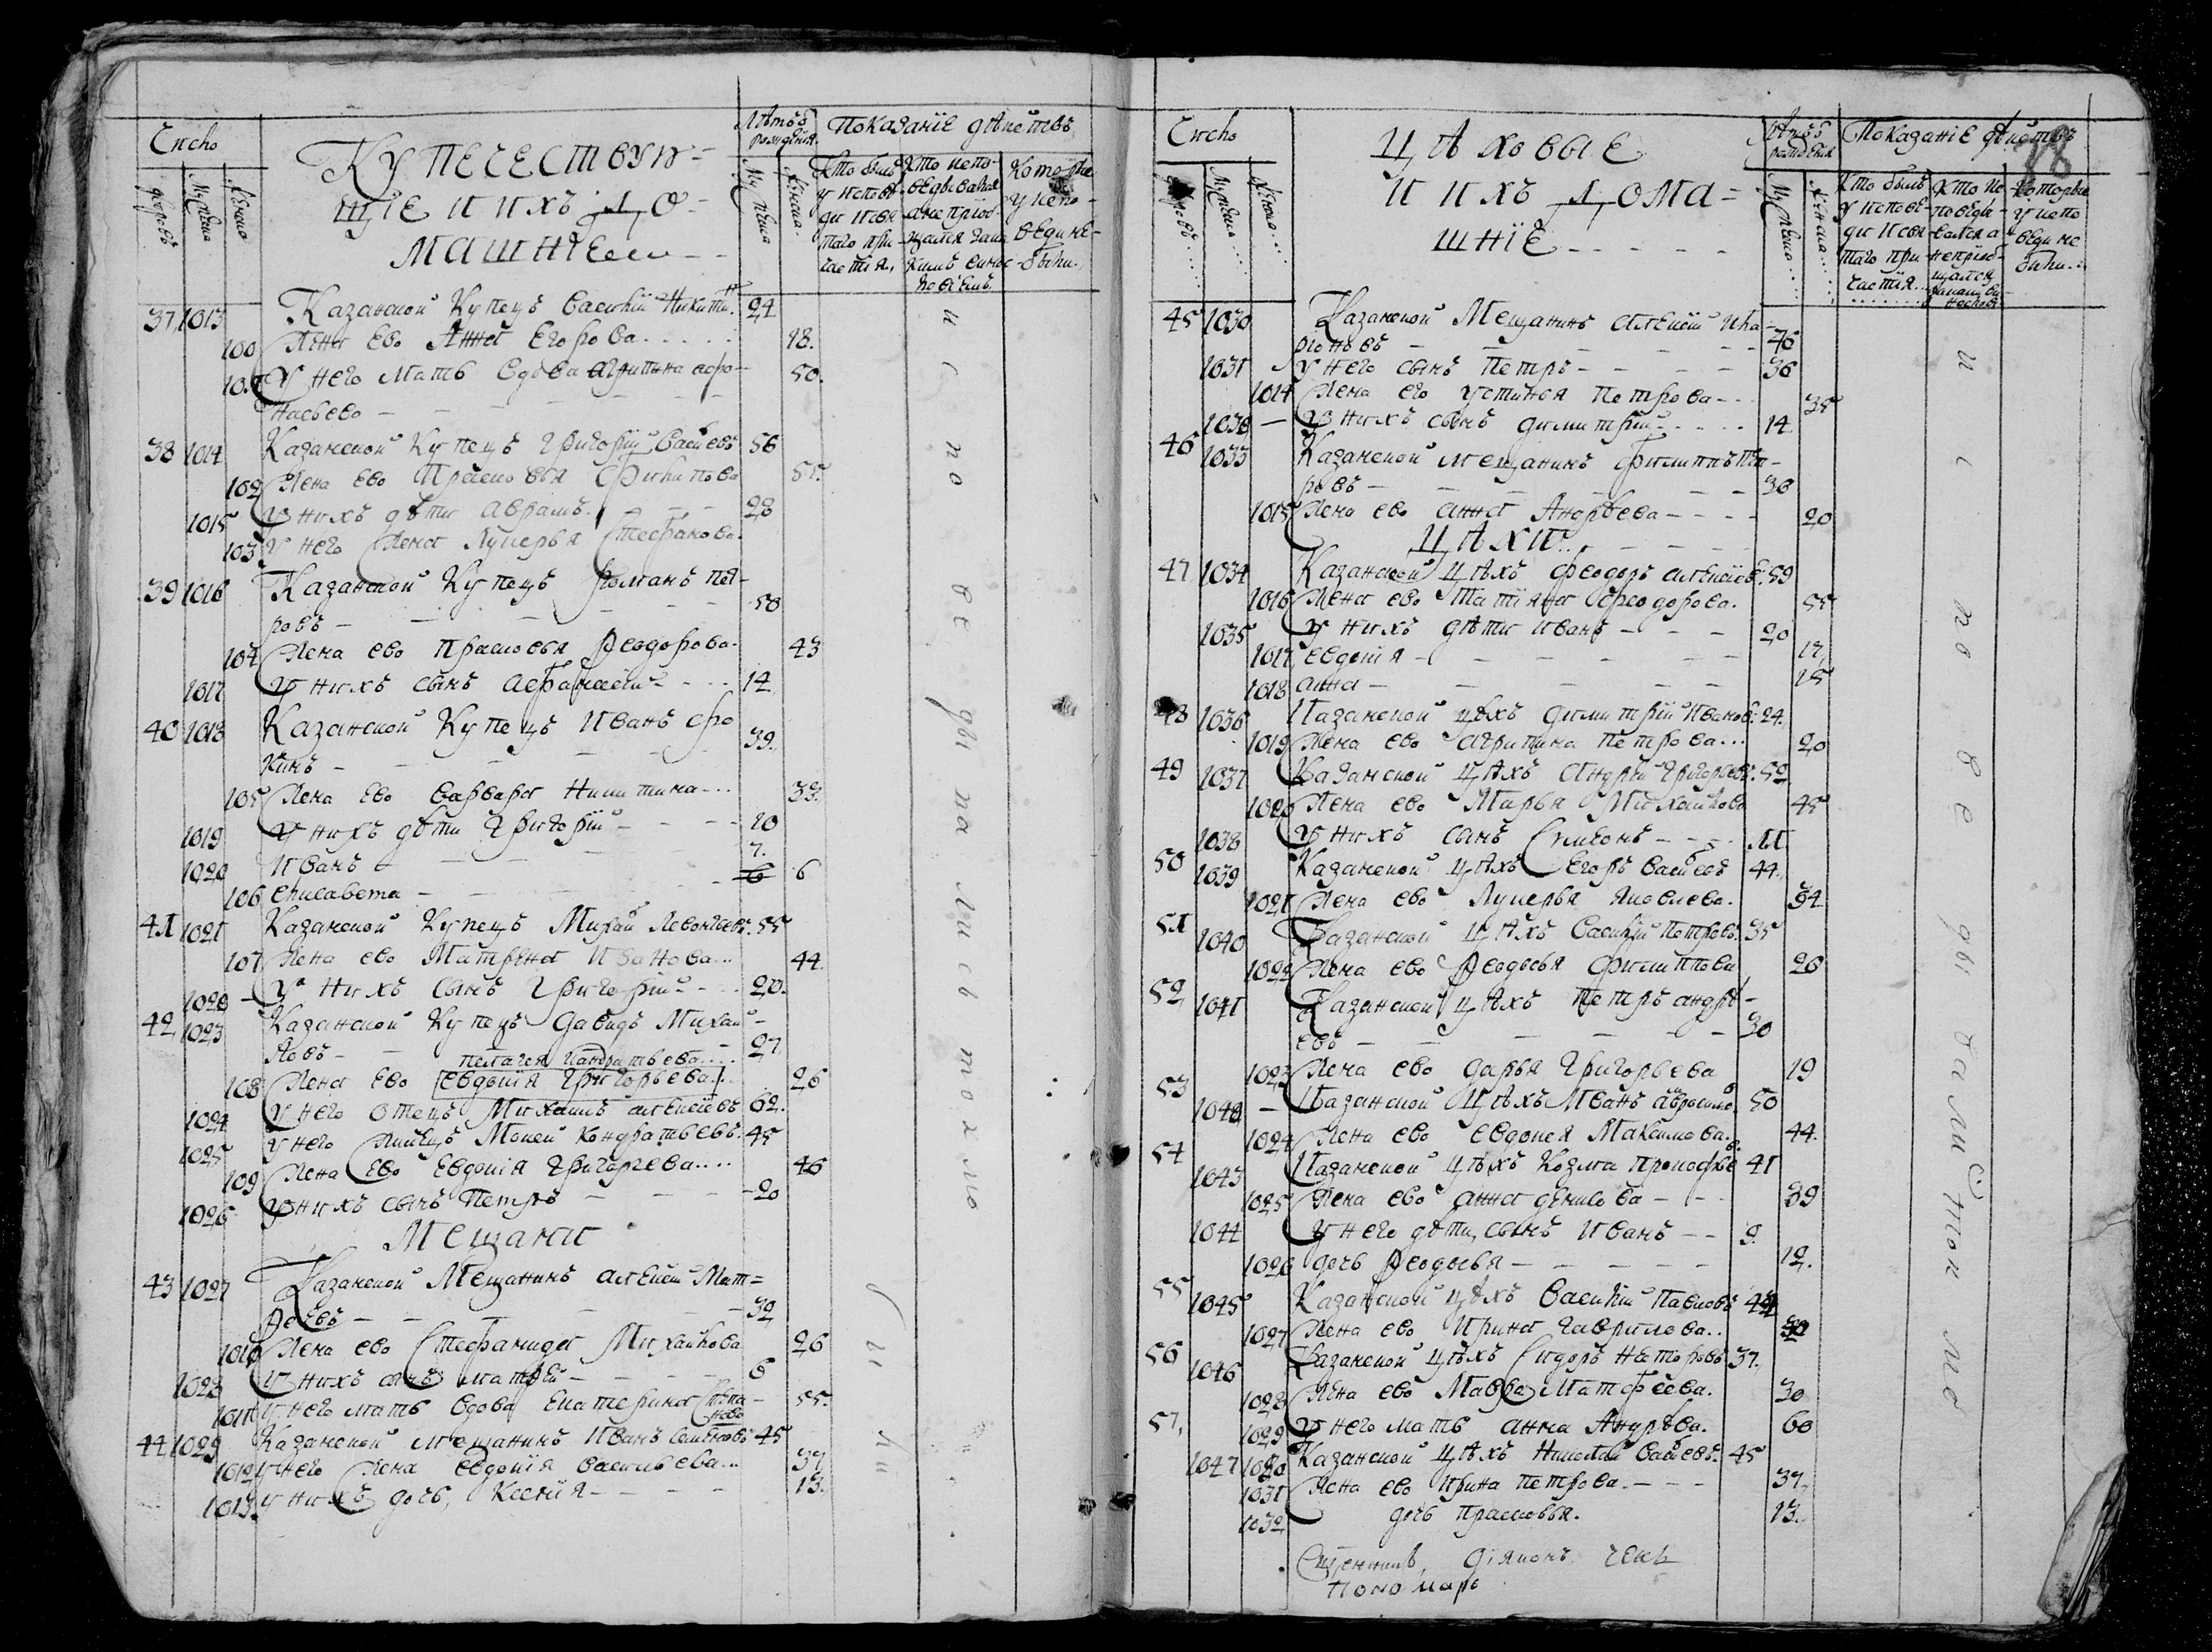 Число
дворовъ
Мужеска
Женска
Купечествую=
щїе и ихъ до=
машнїе
Лѣтъ
рожденїя
Мужеска
Женска
Показанїе дѣйствъ
Кто былъ
у исповѣ-
ди и свя-
таго при-
частїя
Кто испо-
ведывался
а не приоб-
щался
Которые
у испо-
веди не
были
37 1013 Казанской Купецъ Василїй Никити. 24
100 Жена ево Анна Егорова 18.
101 У него мать вдова агрипина афо- 50.
насьева
38 1014 Казанской Купецъ Григорїй Васиевъ 56
102 Жена ево Прасковья Филипова 55.
1015 У нихъ дѣти Аврамъ 28
103 У него Жена Лукерья Стефанова
39 1016 Казанской Купецъ Романъ Пет-
ровъ 50
104 Жена ево Прасковья Ѳеодорова 43
1017 У нихъ сынъ афанасїй 14
40 1018 Казанской Купецъ Иванъ фро
кинъ 39.
105 Жена ево Варвара Никитина 33.
1019 У нихъ дѣти Григорїй 10
1020 Иванъ 7.
106 Елисавета 6 6
41 1021 Казанской Купецъ Михай Левонтьевъ 55
107 Жена ево Матрена Иванова 44
1022 У нихъ сынъ Григорїй 20.
42 1023 Казанской Купецъ Давидъ Михай-
ловъ 27
пелагея Кандратьева
108 Жена ево Евдокїя Григорьева 26
1024 У него отецъ Михаилъ алексїевъ 62.
1025 У него Жилецъ Мокей Кондратьевъ 45
109 Жена Ево Евдокїя Григорьева 46
1026 У нихъ сынъ Петръ 20
Мещана
43 1027 Казанской Мещанинъ алексей Мат=
феевъ 32
1010 Жена ево Стефанида Михайлова 26
1028 У нихъ сынъ матфей 6
1011 У него мать вдова Екатерина Степа- 55.
нова
44 1029 Казанской мещанинъ Иванъ Семеновъ 45
1012 У него Жена Евдокїя Васильева 37
1013 У нихъ дочь, Ксенїя 13.
исповедыталисьтохмо
были
Число
дворовъ
Мужеска
Женска
Цѣховые
и ихъ дома=
шнїе
Лѣтъ
рожденїя
Мужеска
Женска
Показанїе дѣйствъ
18
Кто былъ
у испове-
ди и свя-
таго при-
частїя
Кто ис-
поведы-
вался а
неприоб-
щался
Которые
у испо
веди не
были
45 1030 Казанской Мещанинъ алексїй Ила-
рїоновъ 46
1031 У него сынъ Петръ 36
1014 Жена его Устинья Петрова 35
1032 У нихъ сынъ димитрїй 14
46 1033 Казанской мещанинъ филиппъ Пет-
ровъ 30
1015 Жена ево анна Андрѣева 20
Цѣхи
47 1034 Казанской цѣхъ феодоръ алексїевъ 59
1016 Жена ево Татїяна феодорова 55
1035 У нихъ дѣти иванъ 20
1017 евдокїя 17
1018 анна 15
48 1036 Казанской цѣхъ димитрїй Ивановъ 24.
1019 Жена ево агрипина петрова 20
49 1037 Казанской цѣхъ Андрей Григорьевъ 52
1020 Жена ево Марья Михайлова 45
1038 У нихъ сынъ Симеонъ 11
50 1039 Казанской цѣхъ Егоръ Васиевъ 44
1021 Жена ево Лукерья Яковлева 34
51 1040 Казанской цѣхъ Василїй Петровъ 35
1022 Жена ево Ѳеодосья филиппова 26
52 1041 Казанской цѣхъ Петръ андрѣ-
евъ 30
1023 Жена ево дарья Григорьева 19
53 1042 Казанской цѣхъ Иванъ аврамо. 50
1024 Жена ево евдокея Максимова 44.
54 1043 Казанской цѣхъ Козма прокофье 41
1025 Жена ево анна денисова 39
1044 У него дѣти, сынъ иванъ 9
1026 дочь Ѳеодосья 12.
55 1045 Казанской цѣхъ Василїй Павловъ 42
1027 Жена ево Ирина Гаврилова
56 1046 Казанской цѣхъ Сидоръ Не торовъ 37.
1028 Жена ево Мавра Матфеева 30
1029 У него мать анна Андрѣва 60
57 1047 1030 Казанской цѣхъ Николай Васиевъ 45
1031 Жена ево Ирина петрова 37.
1032 дочь прасковья. 13.
Священникъ, дїяконъ
пономаръ